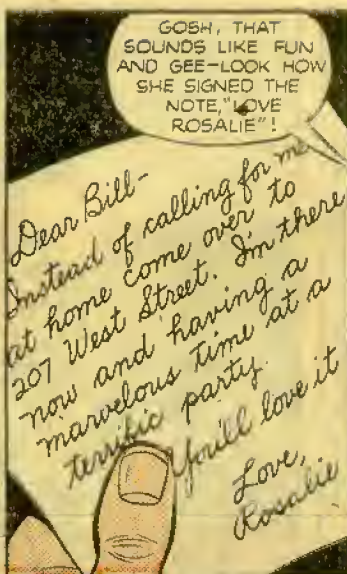 GOSH, THAT
SOUNDS LIKE FUN
AND GEE-LOOK HOW
SHE SIGNED THE
NOTE, "LOVE
ROSALIE"!
Dear Bill-
Instead of calling for me
at home come over to
207 West Street. I'm there
now and having a
marvelous time at a
terrific party.
You'll love it
Love,
Rosalie